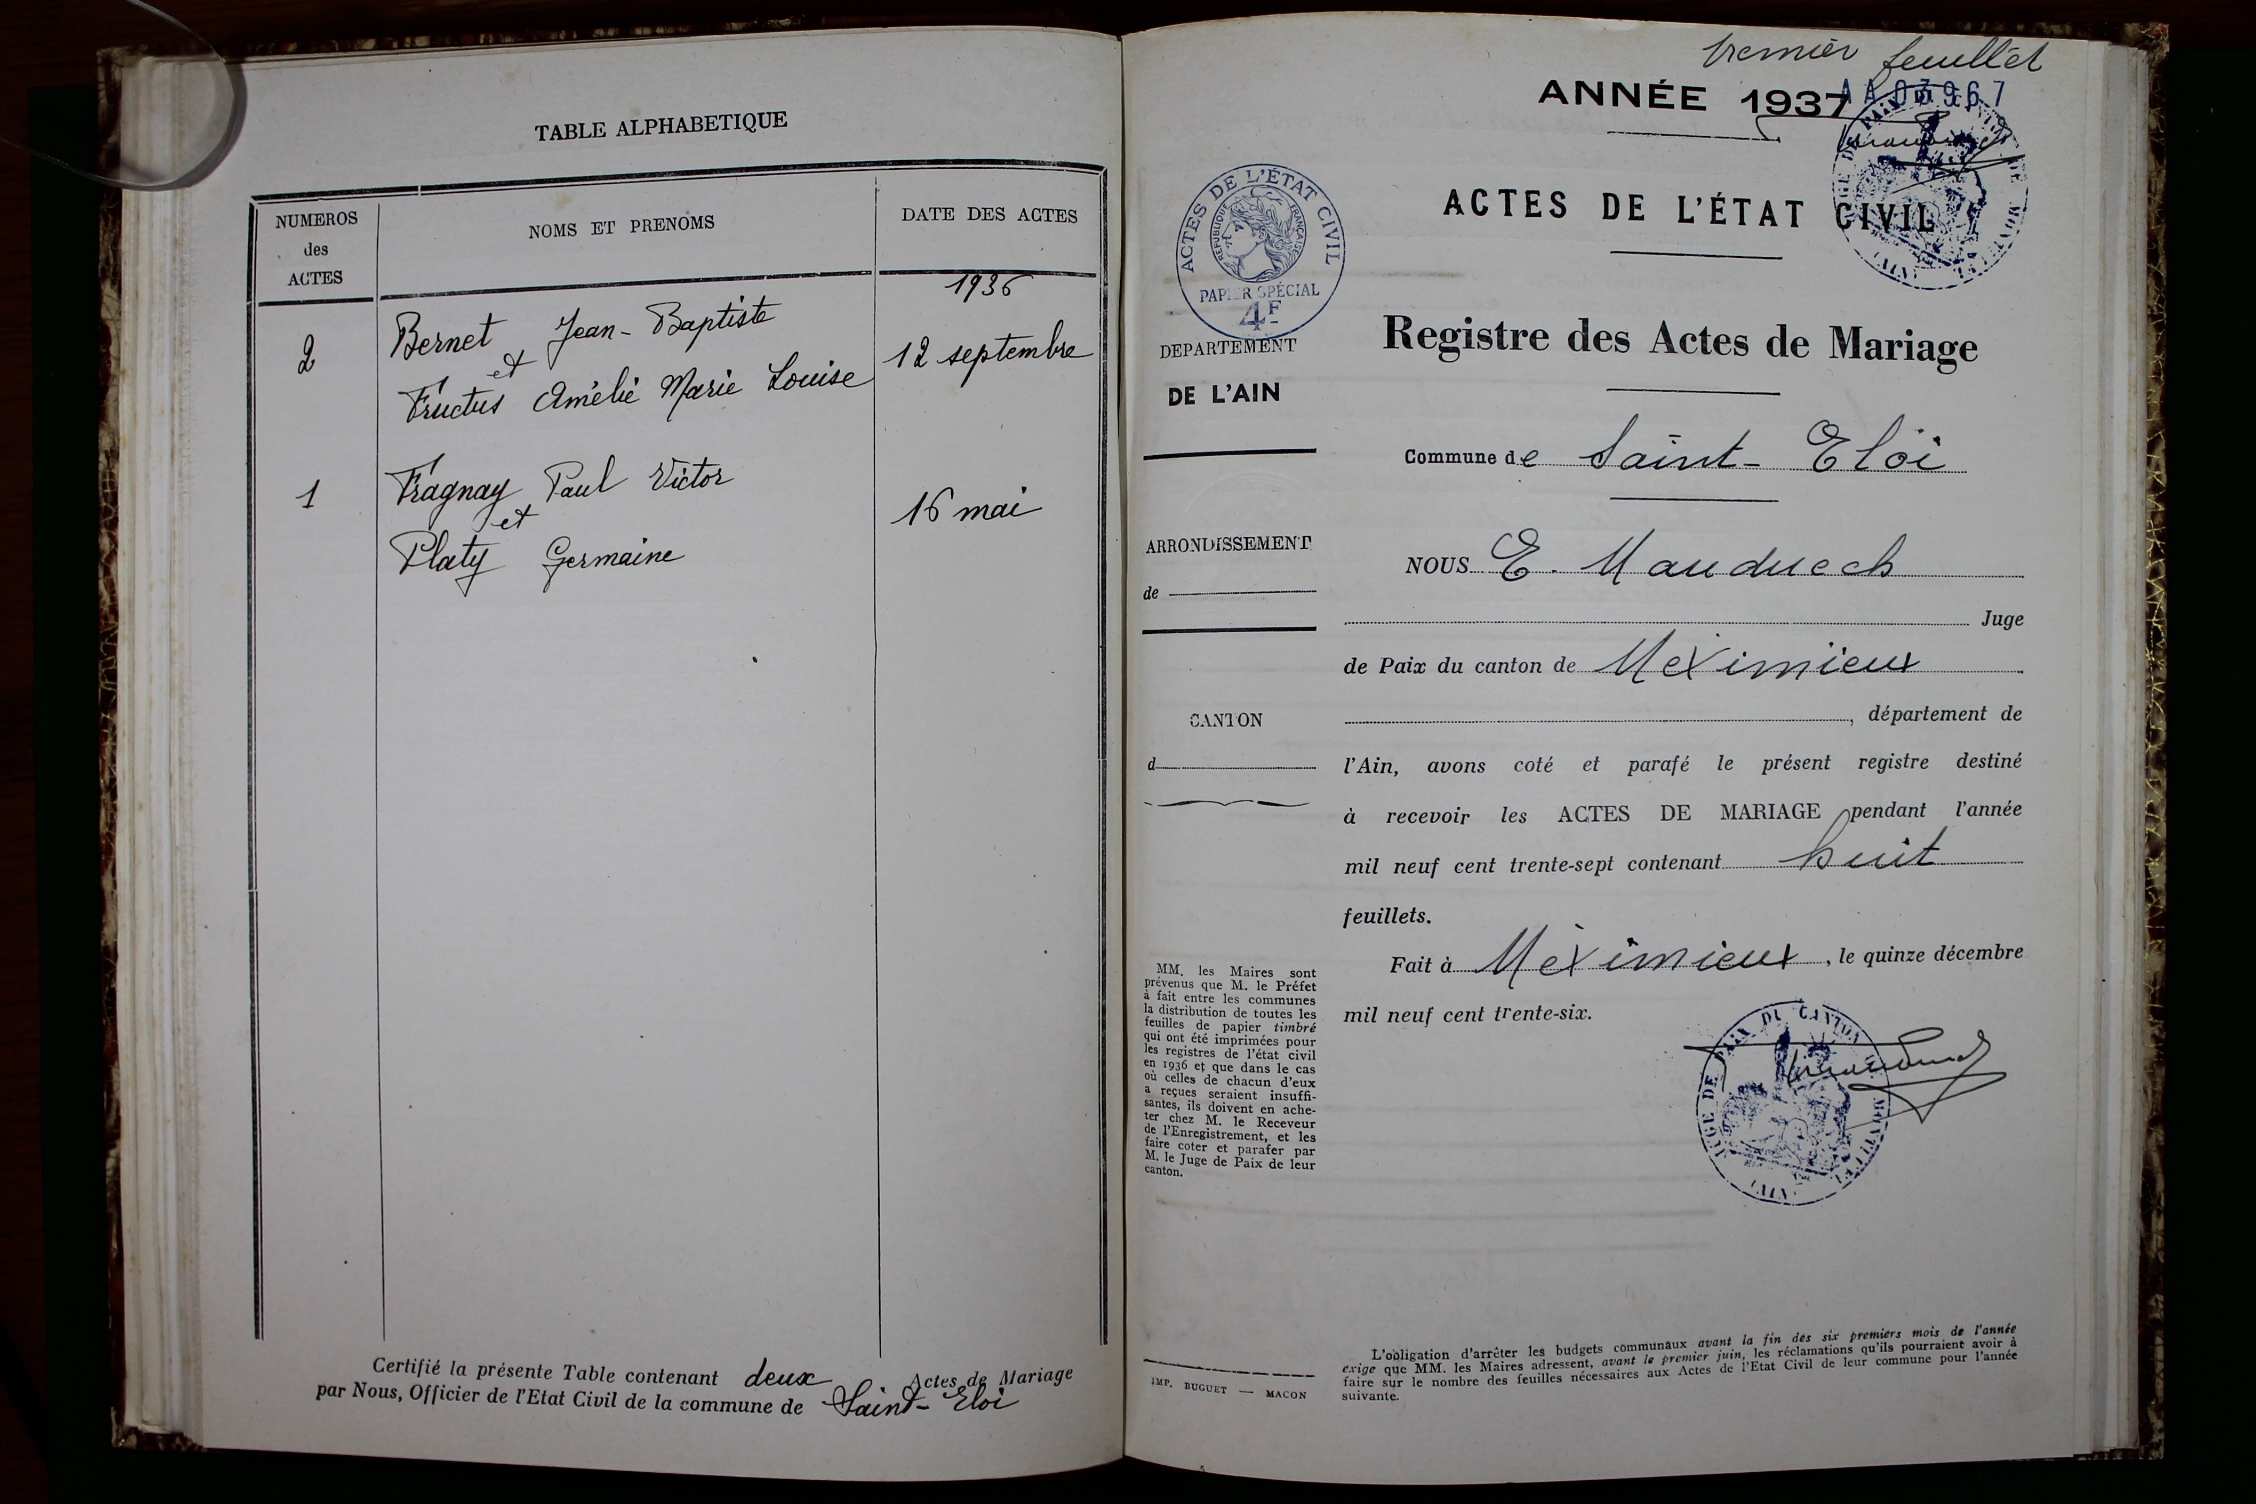 TABLE ALPHABETIQUE
NUMEROS
des
ACTES
NOMS ET PRENOMS
DATE DES ACTES
1936
2
Bernet Jean-Baptiste
et
Fructus Amélie Marie Louise
12 septembre
1
Fragnay Paul Victor
et
Platy Germaine
16 mai
Certifié la présente Table contenant deux Actes de Mariage
par Nous, Officier de l'Etat Civil de la commune de Saint-Eloi
premier feuillet
ANNÉE 1937
AA 03967
ACTES DE L'ÉTAT CIVIL
ACTES DE L'ÉTAT CIVIL
RÉPUBLIQUE FRANÇAISE
PAPIER SPÉCIAL
4F
DEPARTEMENT
DE L'AIN
ARRONDISSEMENT
de
CANTON
d
MM. les Maires sont
prévenus que M. le Préfet
à fait entre les communes
la distribution de toutes les
feuilles de papier timbré
qui ont été imprimées pour
les registres de l'état civil
en 1936 et que dans le cas
où celles de chacun d'eux
a reçues seraient insuffi-
santes, ils doivent en ache-
ter chez M. le Receveur
de l'Enregistrement, et les
faire coter et parafer par
M. le Juge de Paix de leur
canton.
IMP. BUGUET — MACON
Registre des Actes de Mariage
Commune de Saint-Eloi
NOUS E. Mauduech
Juge
de Paix du canton de Méximieux
, département de
l'Ain, avons coté et parafé le présent registre destiné
à recevoir les ACTES DE MARIAGE pendant l'année
mil neuf cent trente-sept contenant huit
feuillets.
Fait à Méximieux, le quinze décembre
mil neuf cent trente-six.
JUGE DE PAIX DU CANTON DE
(AIN)
L'obligation d'arrêter les budgets communaux avant la fin des six premiers mois de l'année
exige que MM. les Maires adressent, avant le premier juin, les réclamations qu'ils pourraient avoir à
faire sur le nombre des feuilles nécessaires aux Actes de l'Etat Civil de leur commune pour l'année
suivante.